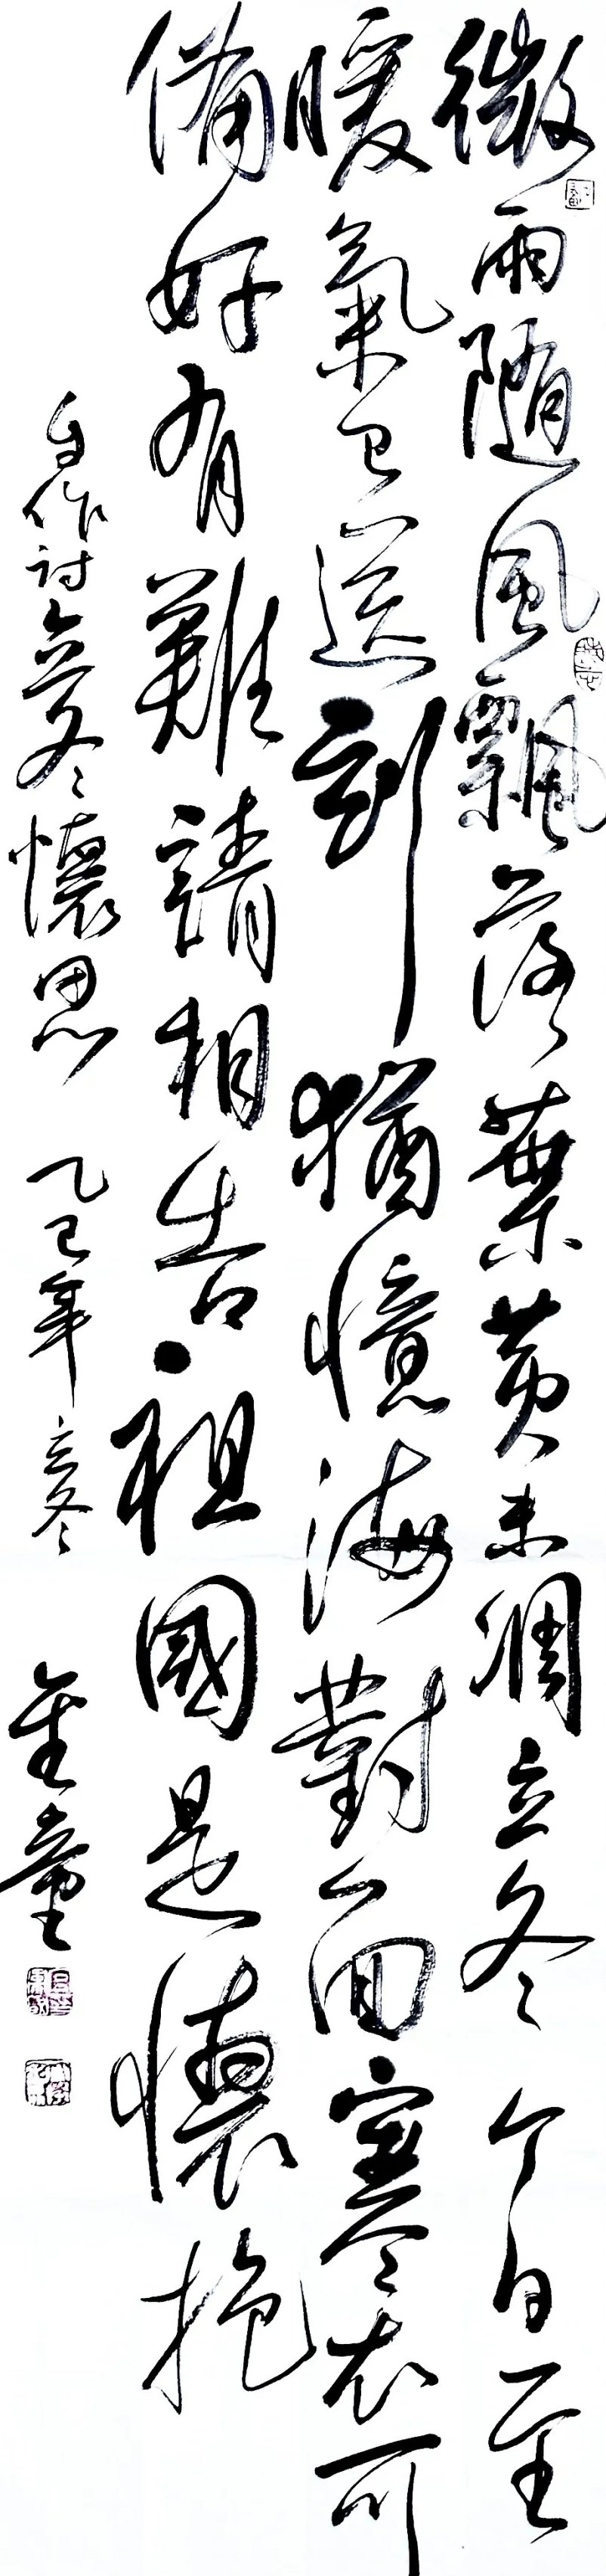 微雨随風飄落葉黃未凋立冬今日至
暖氣已送到猶憶海對面寒衣可
備好有難請相告祖國是懷抱
自作討立冬懷思 乙巳年立冬 童